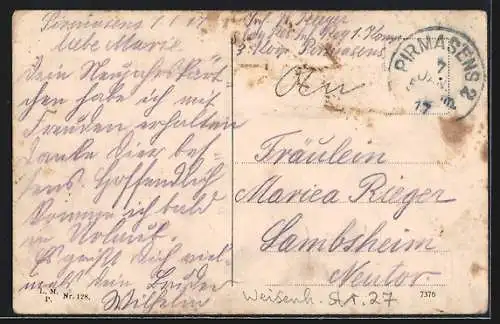 Pirmasens 1/1 17
Liebe Marie
Dein Neujahrskärt-
chen habe ich mit
Freuden erhalten
danke hier bes-
tens. Hoffendlich
komme ich bald
in Urlaub.
Es grüßt dich viel-
mals dein Bruder
Wilhelm
L. M.
P. Nr. 128.
Inf. Rieger
1. Komp
3. Korp. Pirmasens
PIRMASENS 2
7 JAN.
17
An
Fräulein
Mariea Rieger
Lambsheim
Neutor
Weisenh. Str. 27
7376